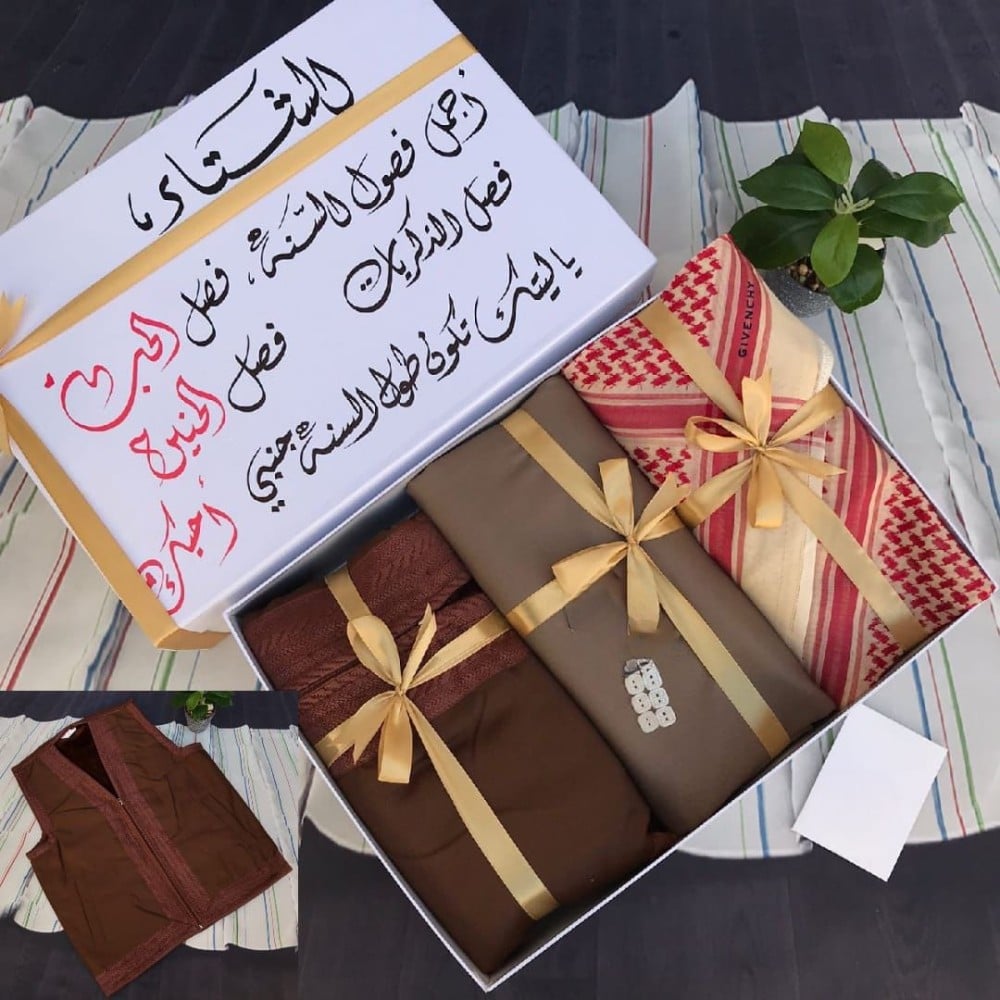 الشتاء
أجمل فصول السّنة، فصل الحب
فصل الذكريات فصل الحنين،
ياليتك تكون طول السنة جنبي أحبك
GIVENCHY